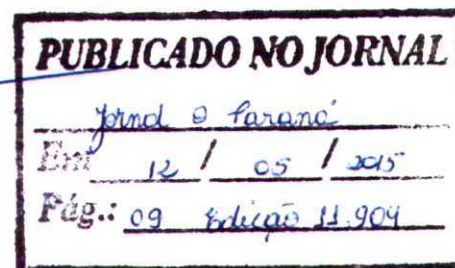 PUBLICADO NO JORNAL
Jornal O Paraná
Em 12 / 05 / 2015
Pág.: 09 Edição 11.904